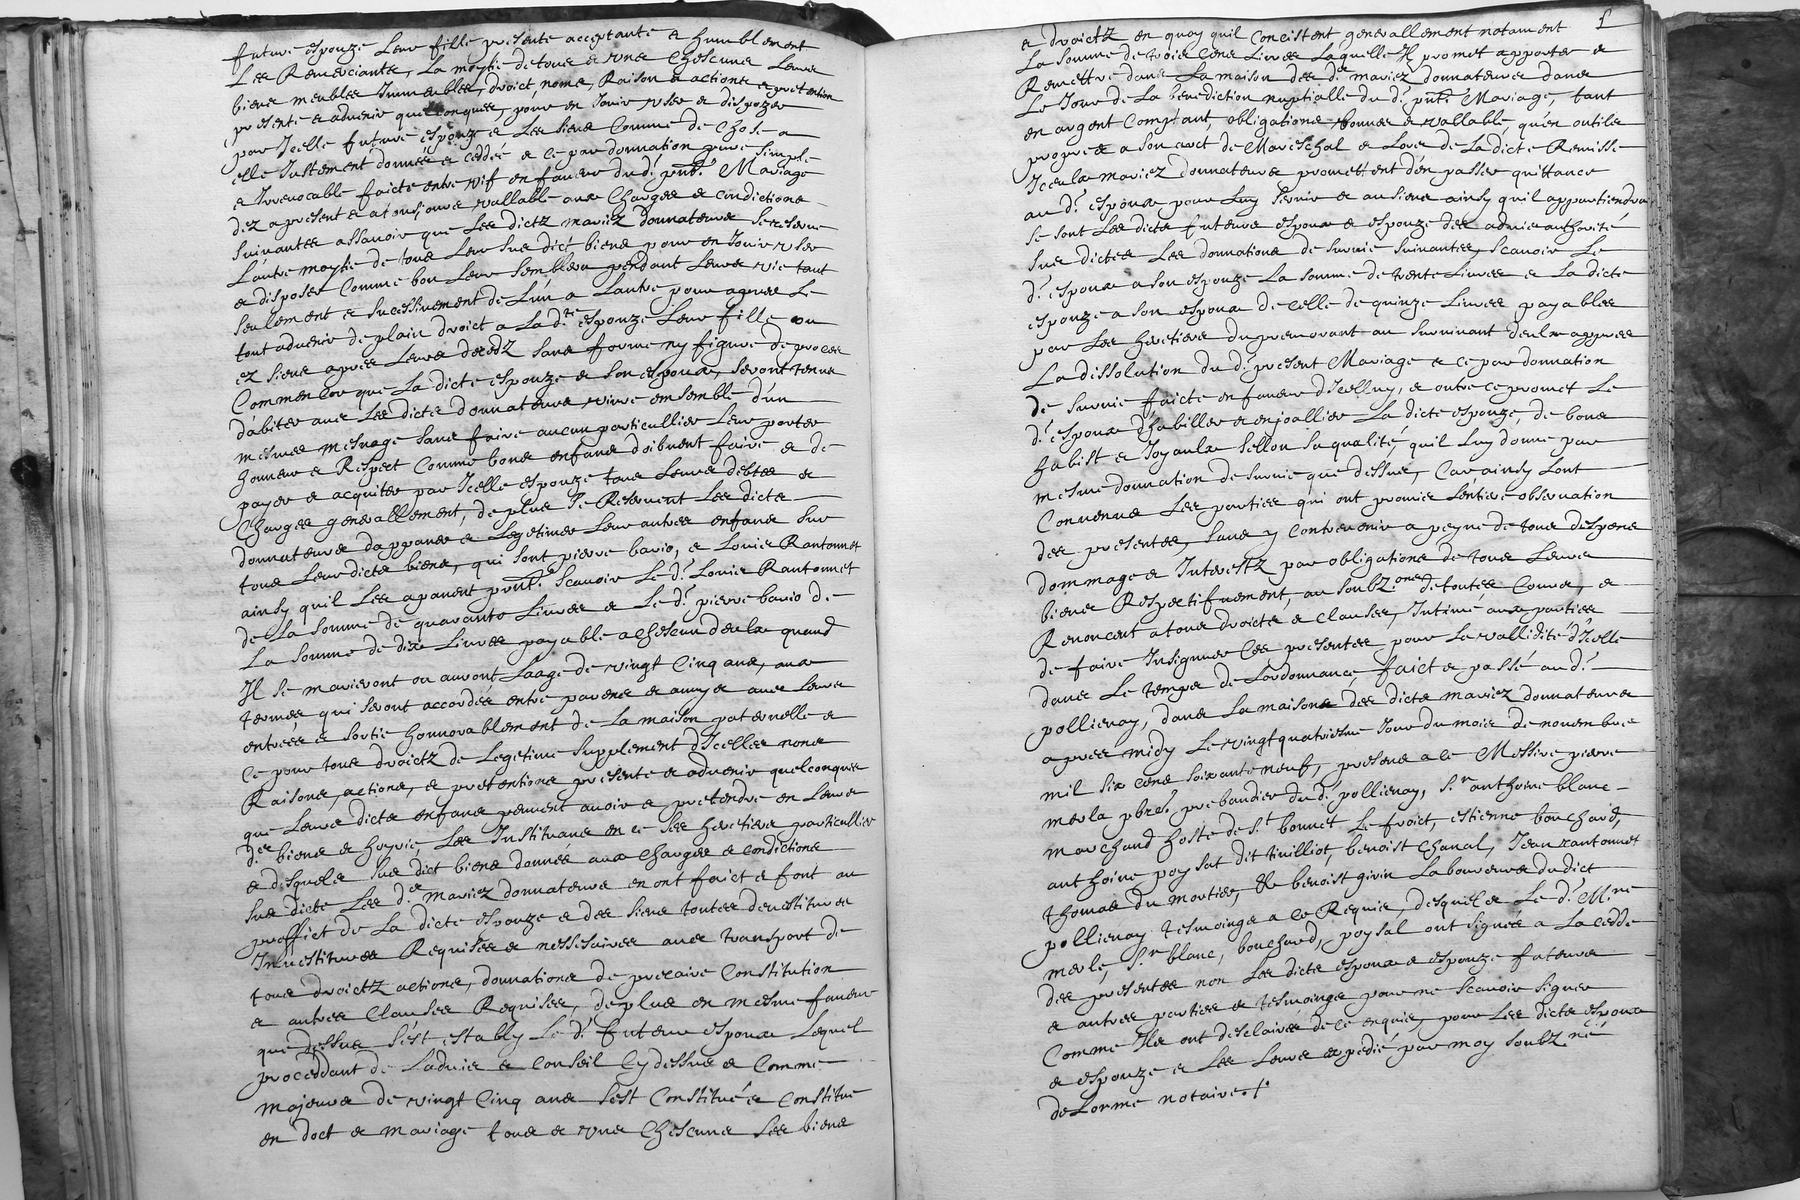 future espouze Leur fille presente acceptante & humblement
Les Remerciante, La moytie de tous & uns Chescuns Leurs
biens meubles Immeubles, droict, noms, Raison & actions & pretention
presente & advenir quelconques, pour en Jouir user & dispozer
par Icelle future espouze & Les siens Comme de Chose a
elle Justement donnée & ceddée & ce par donnation pure simple
& Irrevocable faicte entre vif en faveur du d.t pnt. Mariage
dez apresent & atousjours vallable aux Charges & condictions
suivantes assavoir que Les dictz mariez donnateurs se reserve
L'autre moytie de tous Leur sus dict biens pour en Jouir user
& disposer Comme bon Leur semblera pendant Leurs vie tant
seulement & sucessivement de L'un a L'autre pour apres Le
tout advenir de plain droict a La d.te espouze Leur fille ou
ez siens apres Leurs decedz sans forme ny figure de proces
Comme Lor que La dicte espouze & son espoux, seront tenus
d'abiter avec Les dicts donnateurs vivre ensemble d'un
mesmes mesnage sans faire aucun particullier Leur porter
honneur & Respect Comme bons enfans doibvent faire & de
payer & acquiter par Icelle espouze tous Leurs debtes &
Charges generallement, de plus se Reservent Les dicts
donnateurs d'appaner & Legetimer Leur autres enfans sur
tous Leur dicts biens, qui sont pierre bavio, & Louise Rantonnet
ainsy quil Les apanent pnt. Scavoir Le d.t Louise Rantonnet
de La somme de quarante Livres & Le d.t pierre bavio de
La somme de dix Livres payable a chescun deulx quand
Il se marieront ou auront Laage de vingt Cinq ans, aux
termes qui seront accordés entre parens & amys & avec Leurs
entrees & sortie honnorablement de La maison paternelle &
ce pour tous droictz de Legetime supplement d'Icelles noms
Raisons, actions, & pretentions presente & advenir quelconques
que Leurs dicts enfans peuvent avoir & pretendre en Leurs
d.ts biens & hoyrie, Les Instituans en ce Les heretiers particullier
& desquels sus dict biens donnés aux Charges & condictions
sus dicte Les d.ts mariez donnateurs en ont faict & font au
proffict de La dicte espouze & des siens toutes devestitures
Investitures Requises & nessesaires avec transport de
tous droictz actions, donnations de precaire Constitution
& autres Clauses Requises, de plus en mesme faveur
que dessus s'est estably Le d.t futeur espoux Lequel
proceddant de L'advis & conseil Cy dessus & Comme
majeurs de vingt Cinq ans s'est Constitué & Constitue
en doct & mariage tous & uns Chescuns ses biens
& droictz en quoy quil Concistent generallement notament
La somme de trois Cens Livres Laquelle Il promet apporter &
Remettre dans La maison des d.ts mariez donnateurs dans
Le Jour de La benediction nuptialle du d.t pnt. Mariage, tant
en argent Comptant, obligations bonnes & vallable, qu'en outils
propres a son art de Mareschal & Lors de La dicte Remisse
Iceulx mariez donnateurs promettent d'en passer quittance
au d.t espoux pour Luy servir & au siens ainsy quil appartiendra
se sont Les dicts futeurs espoux & espouze des advis authorité
sus dictes Les donnations de survie suivantes, Scavoir Le
d.t espoux a son espouze La somme de trente Livres & La dicte
espouze a son espoux de Celle de quinze Livres payables
par Les heretiers du premourant au survivant d'eulx appres
La dissolution du d.t present Mariage & ce par donnation
de survie faicte en faveur d'Icelluy, & outre ce promet Le
d.t espoux d'habiller & enjoallier La dicte espouze, de bons
habist & Joyaulx sellon sa qualité, quil Luy donne par
mesme donnation de survie que dessus, Car ainsy Lont
Convenus Les parties qui ont promis L'entiere observation
des presentes, sans y Contrevenir a peyne de tous despens
dommage & Interestz par obligations de tous Leurs
biens Respectifvement, au soubz.ons de toutes Cours, &
Renoncent a tous droicts & Clauses, Intime aux parties
de faire Insignuer Ces presentes pour La vallidité d'Icelle
dans Le temps de Lordonnance, faict & passé au d.t
pollienay, dans La maison des dicts mariez donnateurs
apres midy Le vingt quatriesme Jour du mois de novembre
mil six cens soixante neuf, presens a ce Messire pierre
merla pbre. prebandier du d.t pollienay, S.r anthoine blanc
marchand hoste de S.t bonnet Le froict, estienne bouchard,
anthoine poysat dit tivilliot, benoist Chanal, Jean rantonnet
thomas du mortier, & benoist givin Laboureurs du dict
pollienay tesmoings a ce Requis, desquels Le d.t M.re
merle, S.r blanc, bouchard, poysal ont signés a La cedde
des presentes non Les dicts espoux & espouze futeurs
& autres parties & tesmoings pour ne Scavoir signer
Comme Ils ont desclairés de ce enquis, pour Les dicts espoux
& espouze & Les Leurs expedié par moy soubz.né
deLorme notaire./.